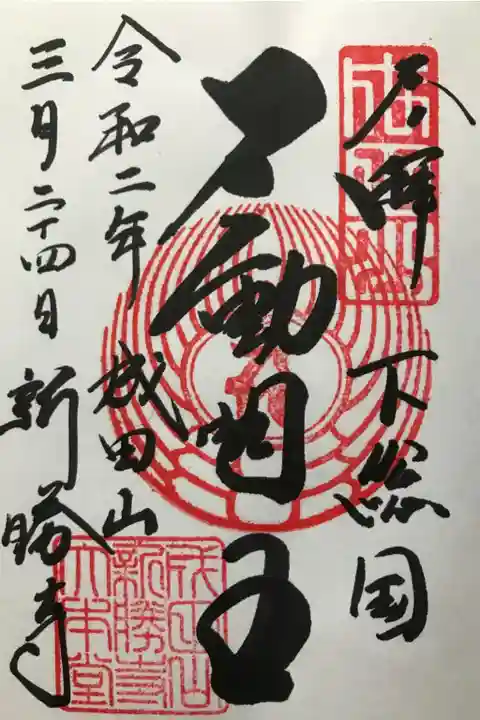 奉拝 下総国
不動明王
令和二年 成田山
三月二十四日 新勝寺
成田山
新勝寺
大本堂
成田山